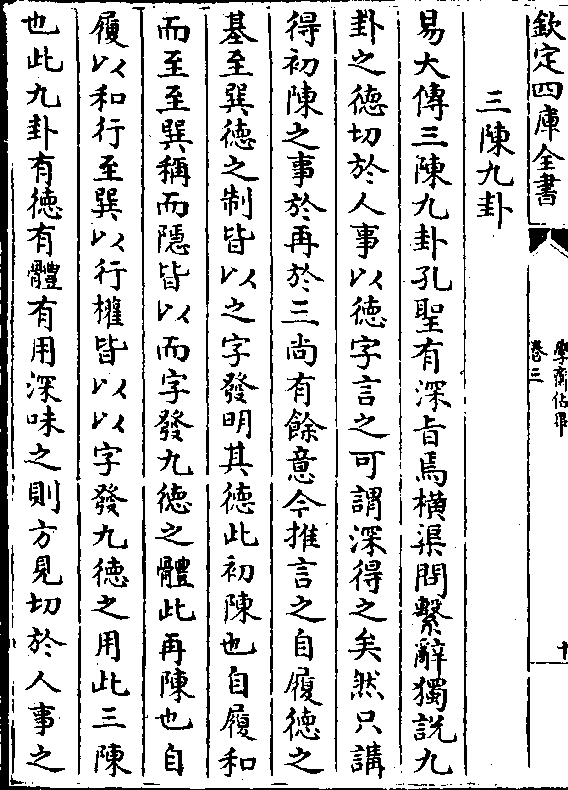 欽定四庫全書
學齋佔畢
卷三
十
三陳九卦
易大傳三陳九卦孔聖有深旨焉橫渠問繫辭獨説九
卦之德切於人事以德字言之可謂深得之矣然只講
得初陳之事於再於三尚有餘意今推言之自履德之
基至巽德之制皆以之字發明其德此初陳也自履和
而至至巽稱而隱皆以而字發九德之體此再陳也自
履以和行至巽以行權皆以以字發九德之用此三陳
也此九卦有德有體有用深味之則方見切於人事之